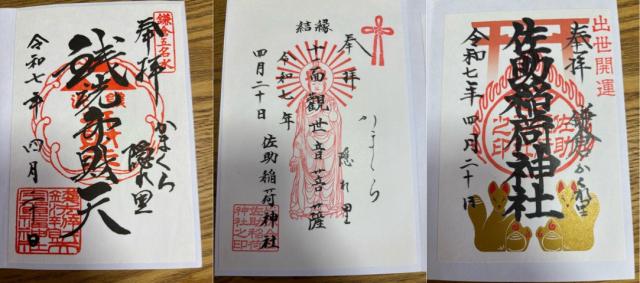 鎌倉五名水
奉拝
かまくら
隠れ里
銭洗弁財天
令和七年
四月二十日
結縁
奉拝
かまくら
隠れ里
十一面觀世音菩薩
令和七年
四月二十日
佐助稲荷神社
佐助稲荷
神社之印
出世開運
奉拝
鎌倉かくれ里
佐助稲荷神社
令和七年四月二十日